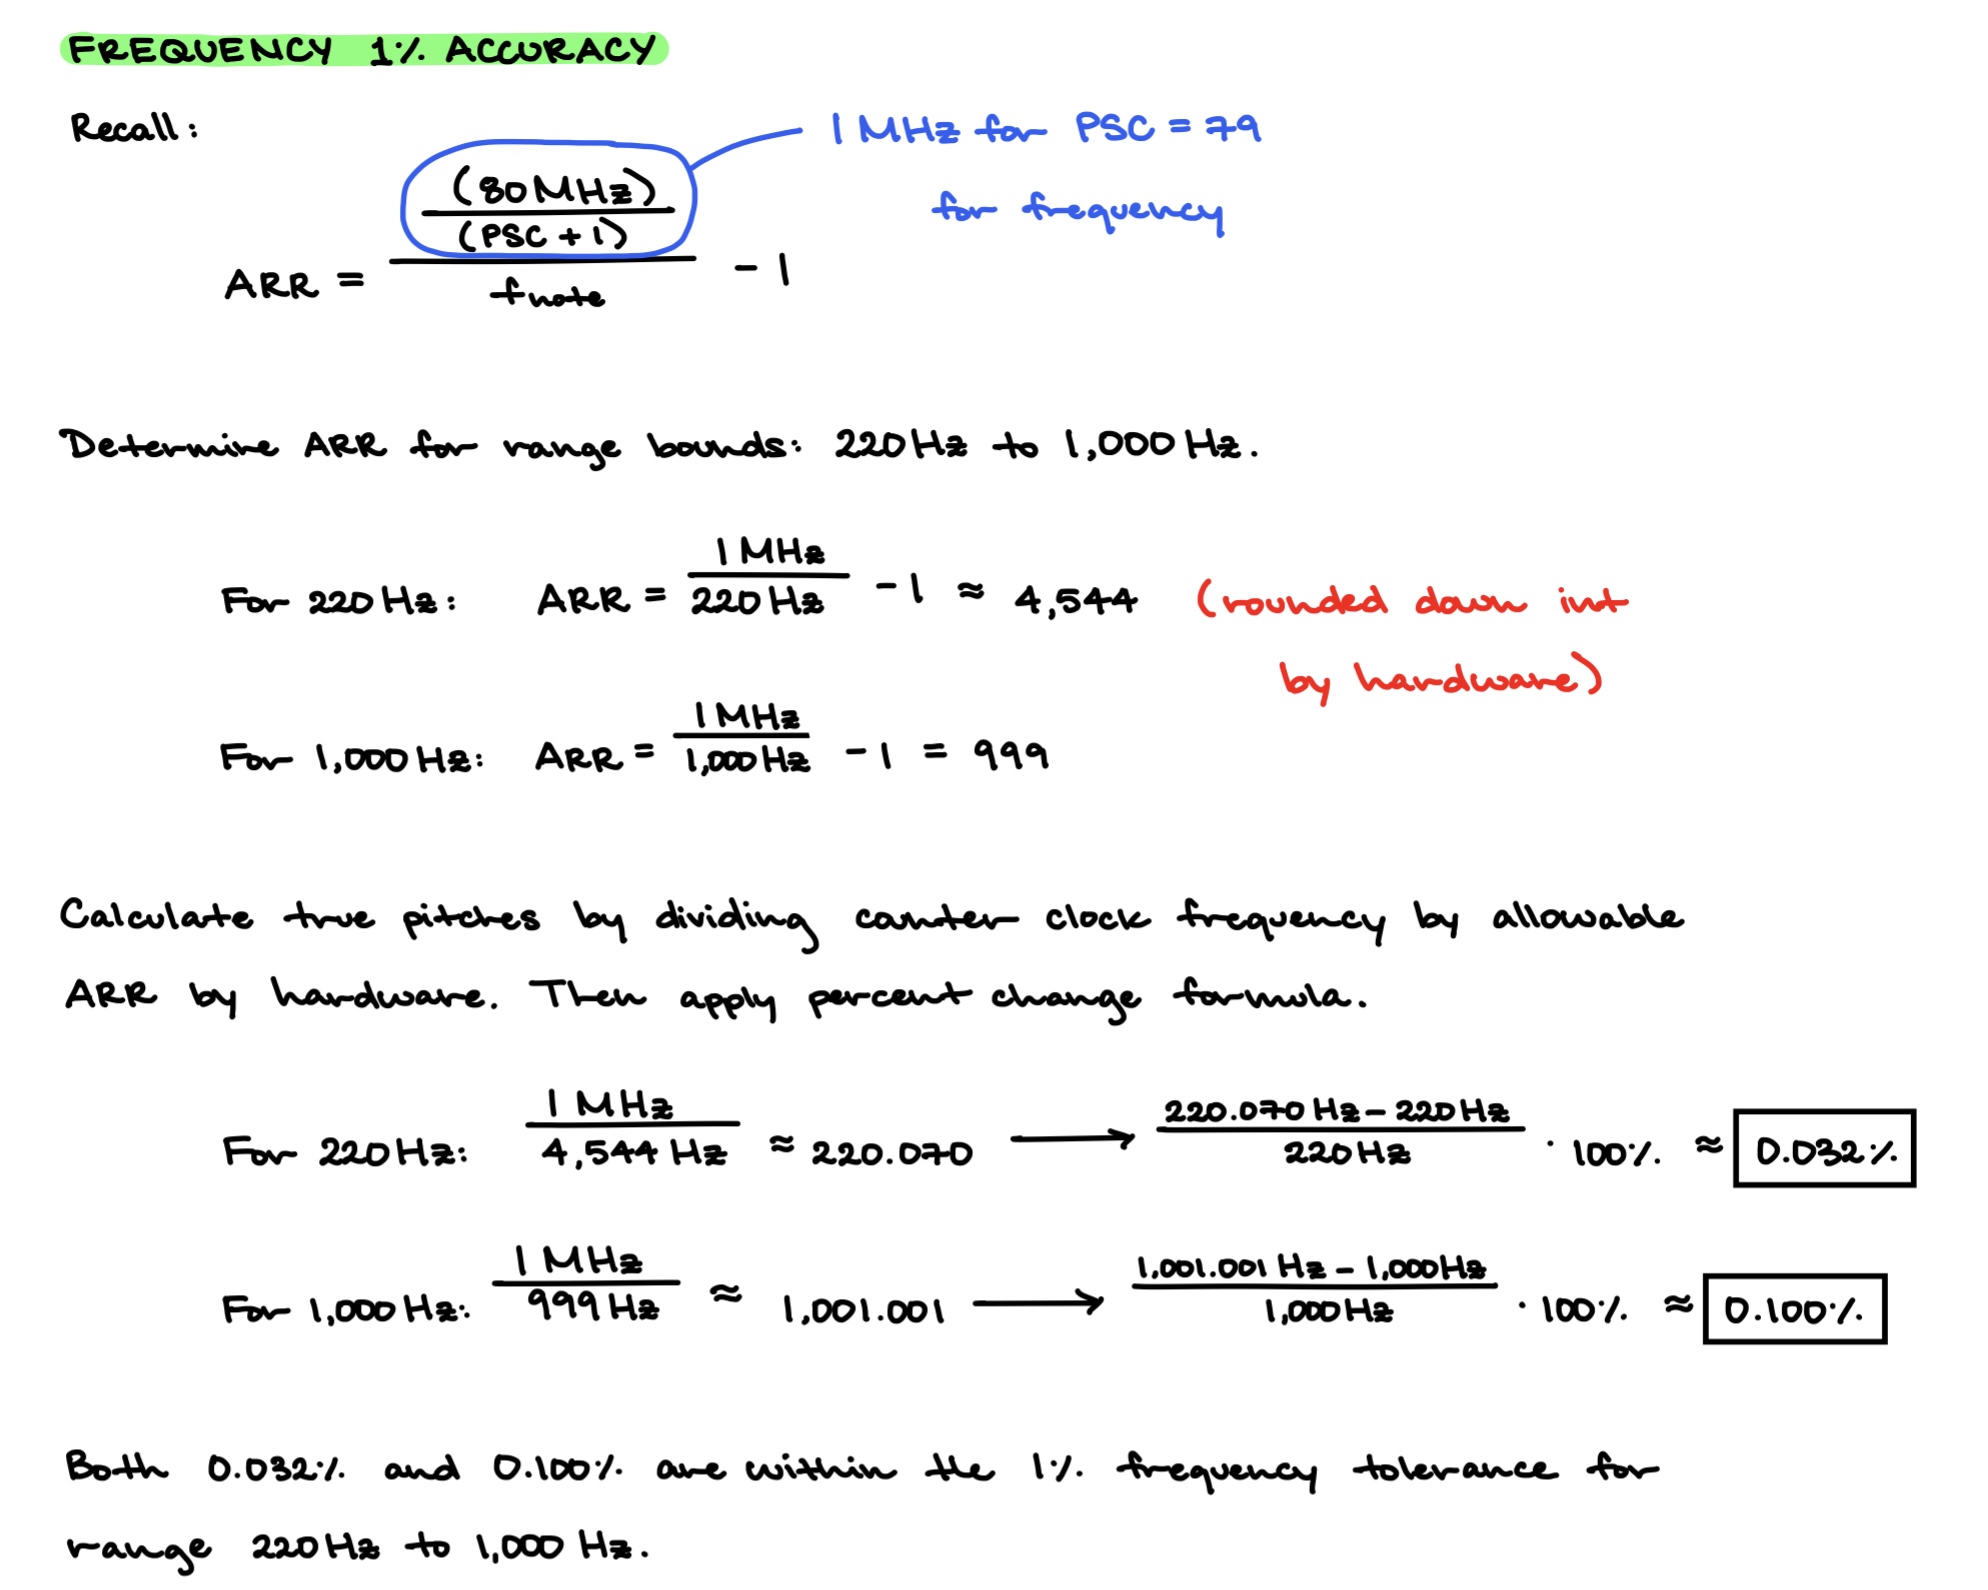 FREQUENCY 1% ACCURACY
Recall:
1 MHz for PSC = 79
for frequency
ARR = ((80 MHz) / (PSC + 1)) / fnote - 1
Determine ARR for range bounds: 220 Hz to 1,000 Hz.
For 220 Hz: ARR = 1 MHz / 220 Hz - 1 ≈ 4,544 (rounded down int
by hardware)
For 1,000 Hz: ARR = 1 MHz / 1,000 Hz - 1 = 999
Calculate true pitches by dividing counter clock frequency by allowable
ARR by hardware. Then apply percent change formula.
For 220 Hz: 1 MHz / 4,544 Hz ≈ 220.070 → 220.070 Hz - 220 Hz / 220 Hz · 100% ≈ 0.032%
For 1,000 Hz: 1 MHz / 999 Hz ≈ 1,001.001 → 1,001.001 Hz - 1,000 Hz / 1,000 Hz · 100% ≈ 0.100%
Both 0.032% and 0.100% are within the 1% frequency tolerance for
range 220 Hz to 1,000 Hz.